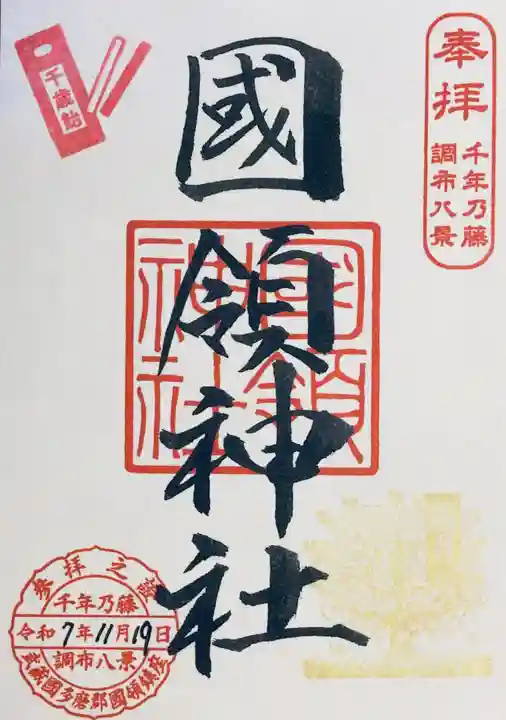 奉拝
千年乃藤
調布八景
國領神社
國領
神社
千歳飴
参拝之證
千年乃藤
令和7年11月19日
調布八景
武蔵國多磨郡國領鎮座